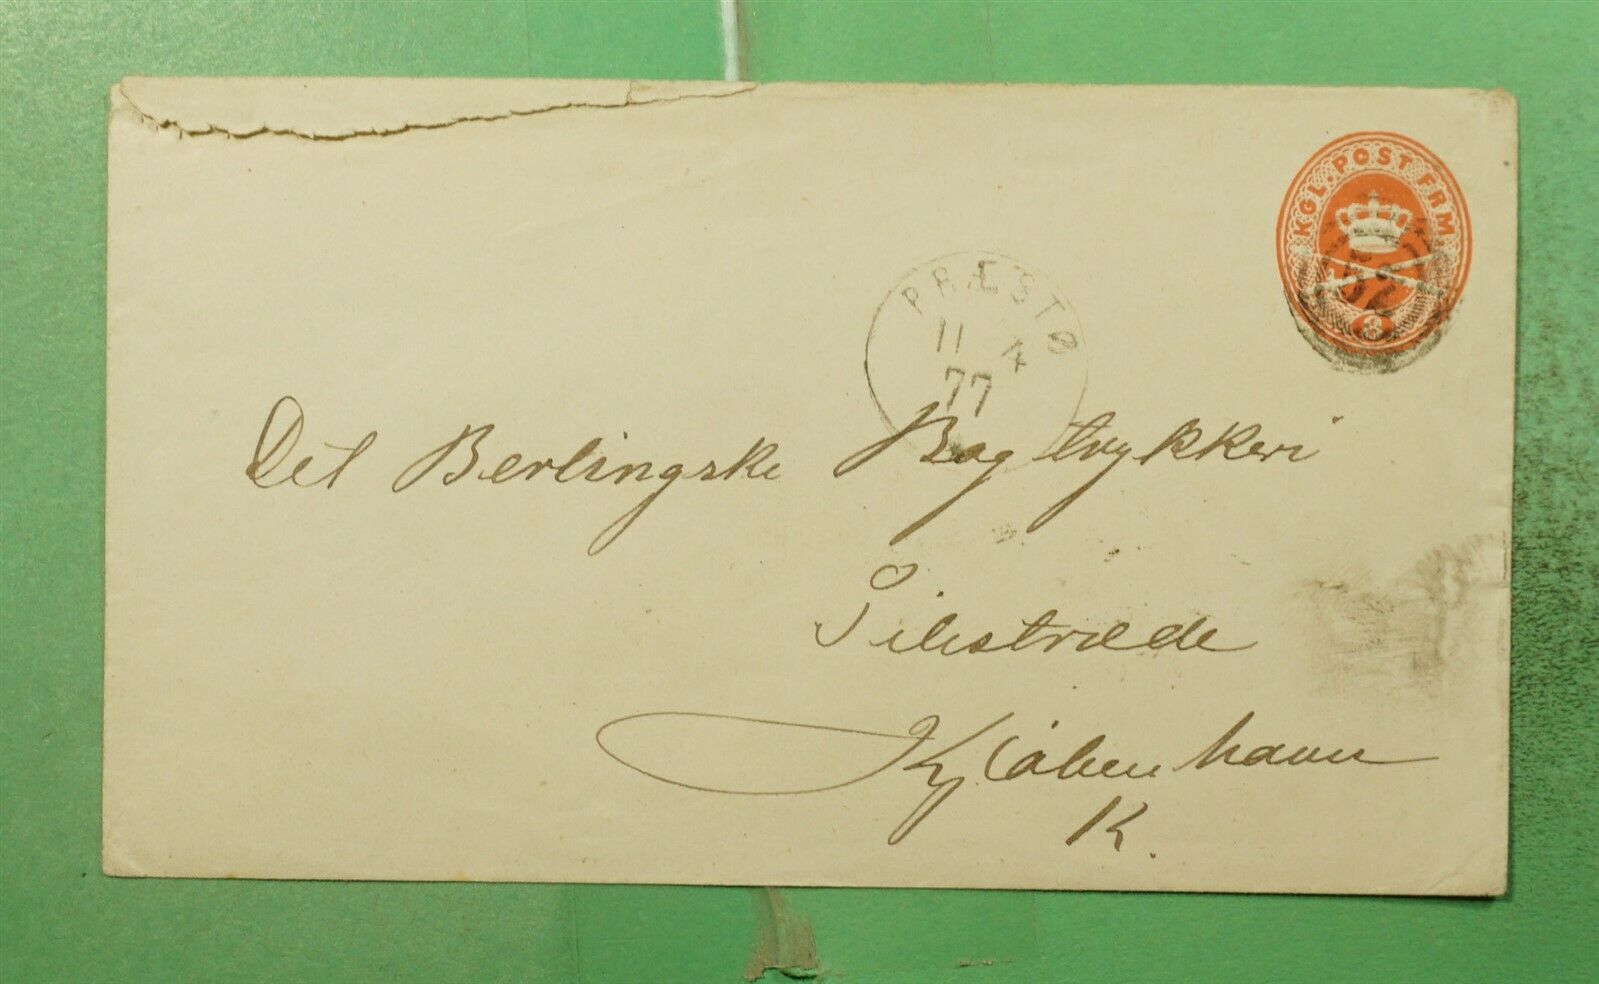 KGL. POST FRM
3
PRÆSTØ
11 4
77
Det Berlingske Bogtrykkeri
Pilestræde
Kjöbenhavn
K.